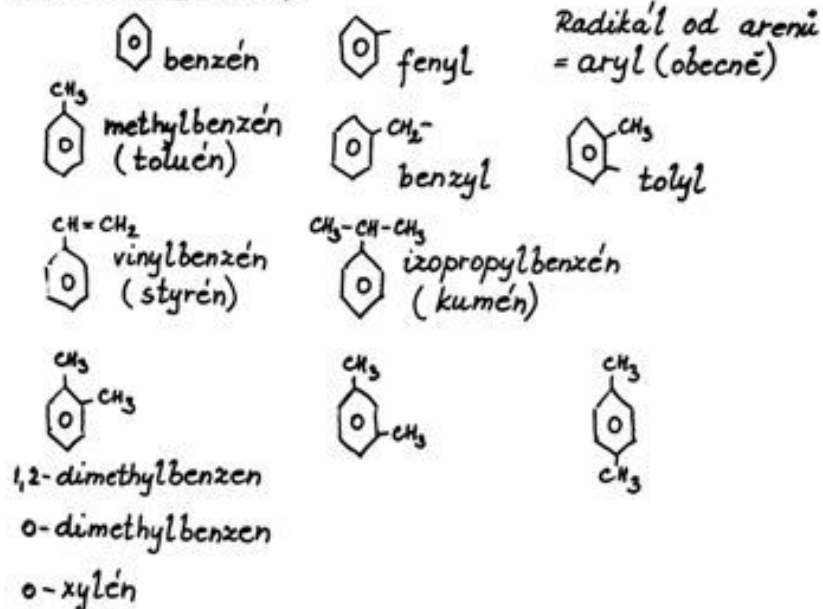 benzén
fenyl
Radikál od arenů
= aryl (obecně)
CH3
methylbenzén
(toluén)
CH2-
benzyl
CH3
tolyl
CH=CH2
vinylbenzén
(styrén)
CH3-CH-CH3
izopropylbenzén
(kumén)
CH3
CH3
CH3
CH3
CH3
CH3
1,2-dimethylbenzen
o-dimethylbenzen
o-xylén